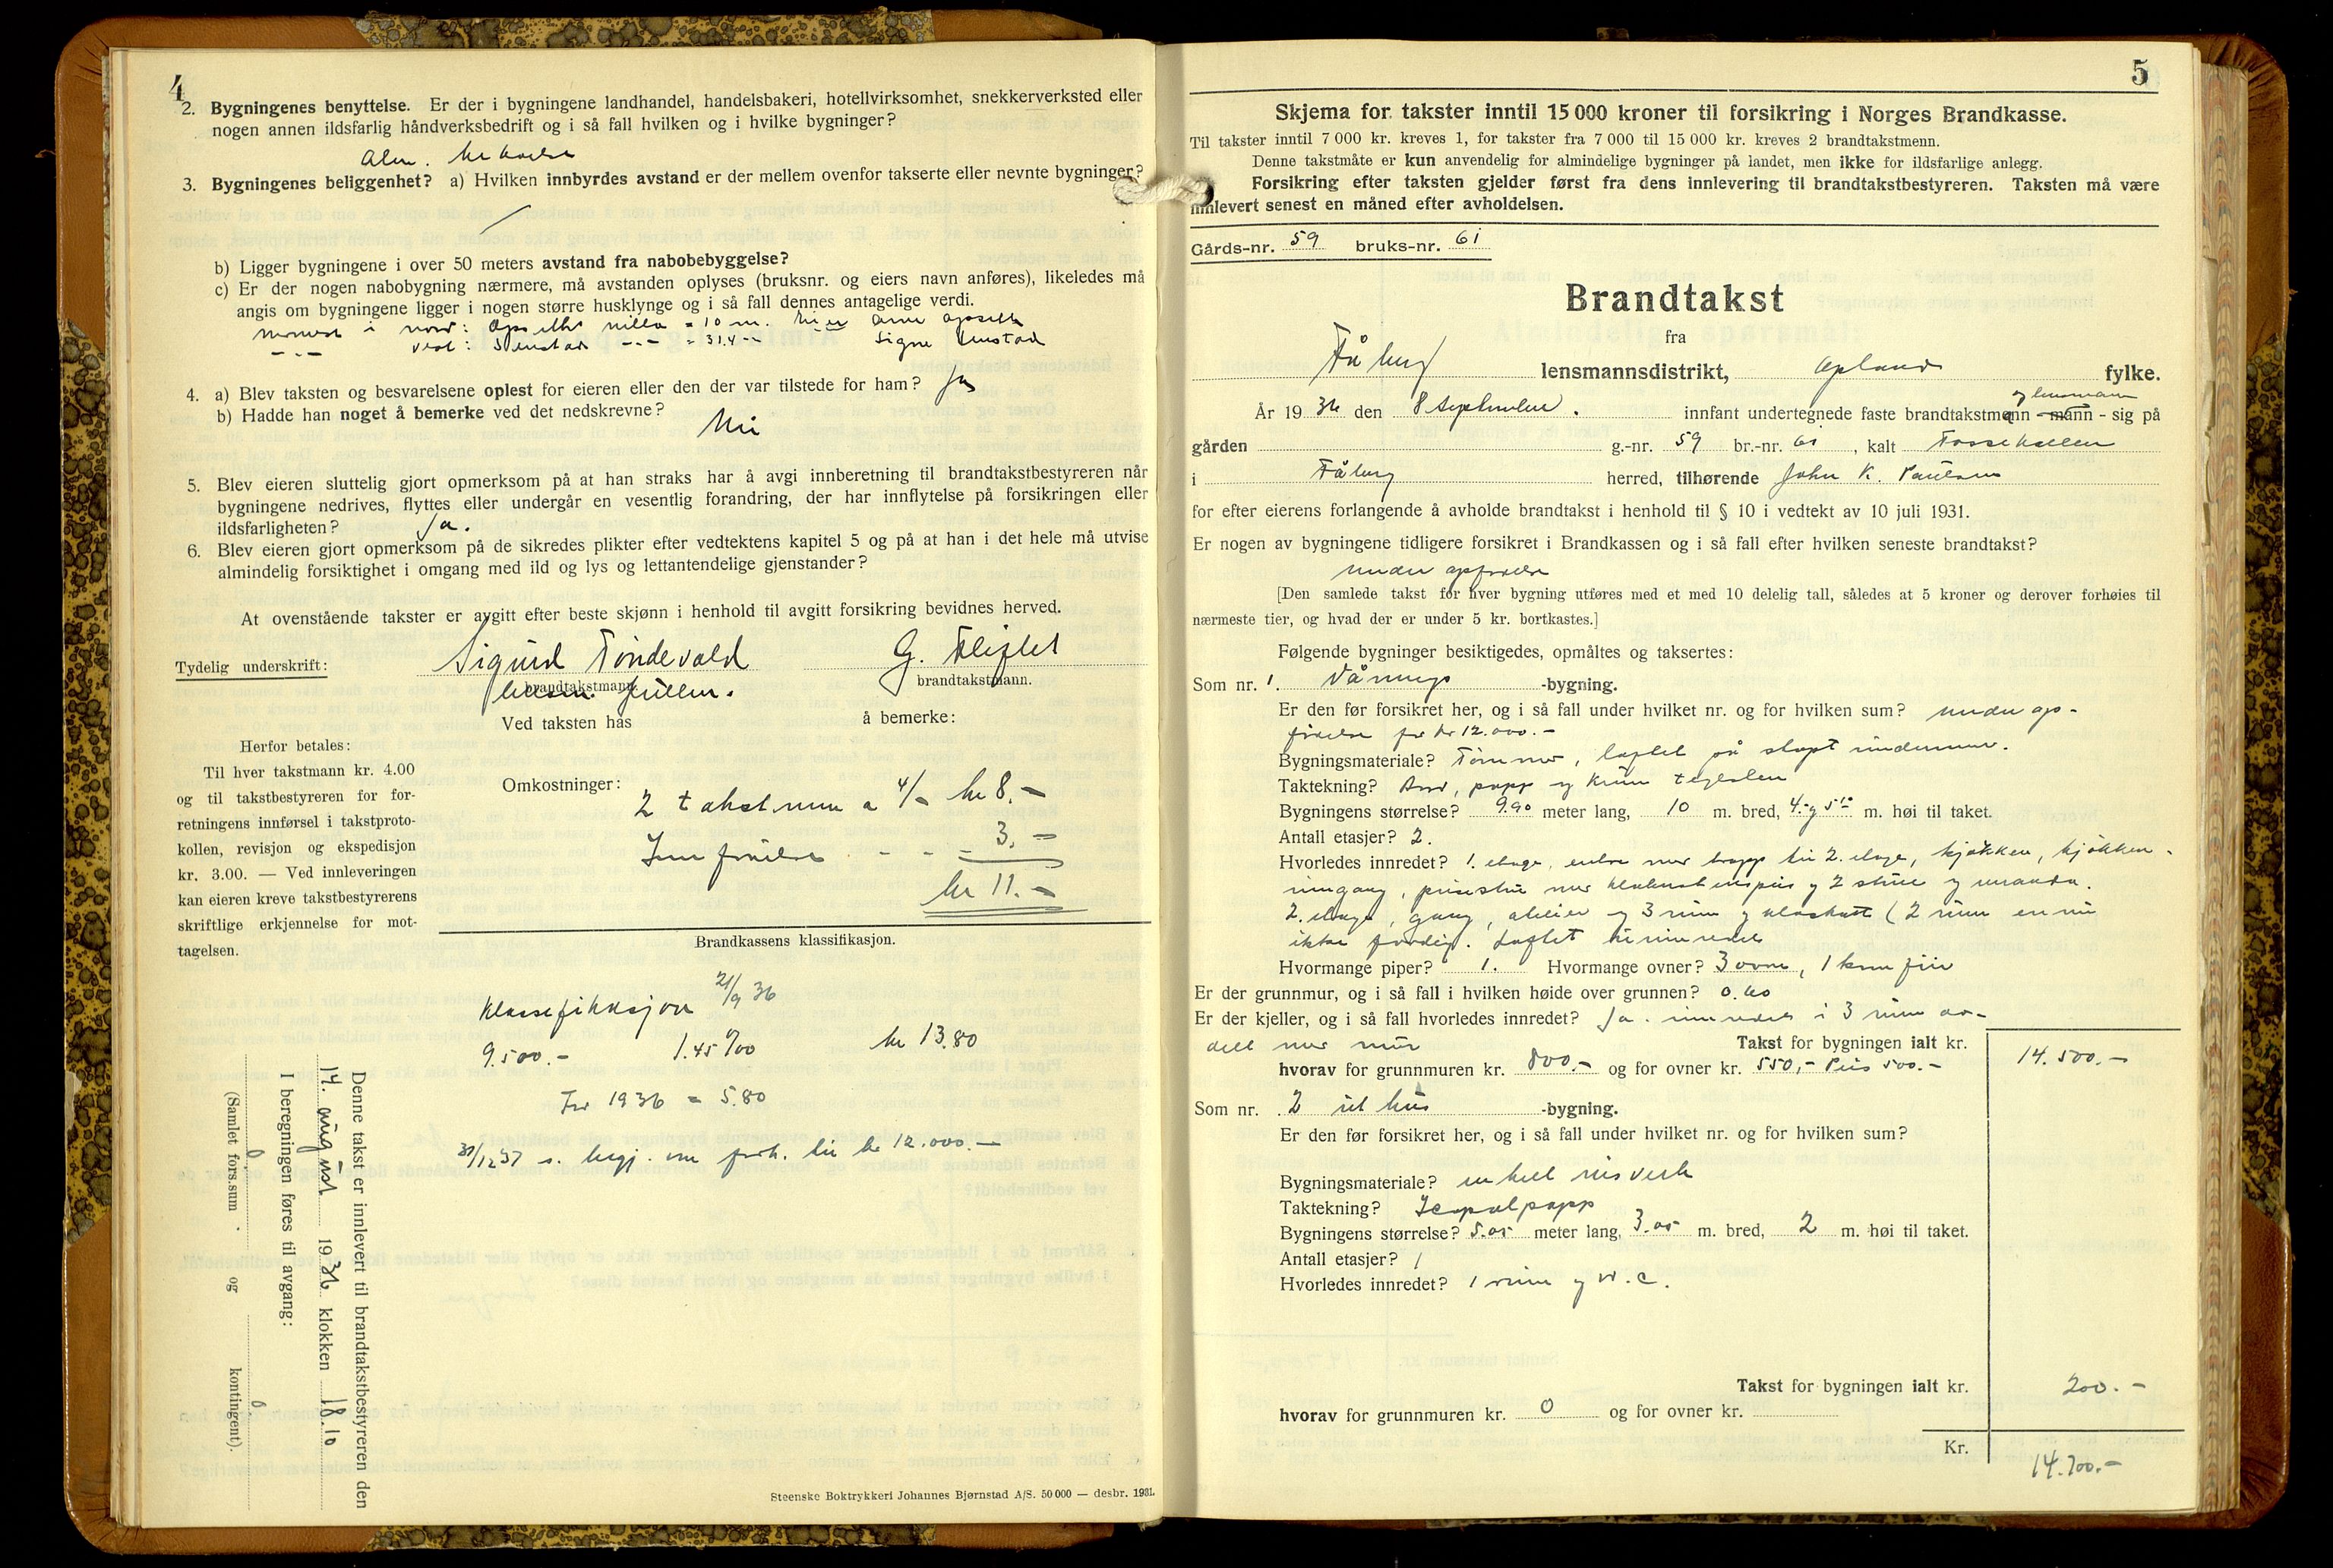 4
2. Bygningenes benyttelse. Er der i bygningene landhandel, handelsbakeri, hotellvirksomhet, snekkerverksted eller
nogen annen ildsfarlig håndverksbedrift og i så fall hvilken og i hvilke bygninger?
Alm.
3. Bygningenes beliggenhet? a) Hvilken innbyrdes avstand er der mellem ovenfor takserte eller nevnte bygninger?
b) Ligger bygningene i over 50 meters avstand fra nabobebyggelse?
c) Er der nogen nabobygning nærmere, må avstanden oplyses (bruksnr. og eiers navn anføres), likeledes må
angis om bygningene ligger i nogen større husklynge og i så fall dennes antagelige verdi.
i nord: villa = 10 m.
— " — vest: — " — = 31.4 — Signe
4. a) Blev taksten og besvarelsene oplest for eieren eller den der var tilstede for ham? Ja
b) Hadde han noget å bemerke ved det nedskrevne?
Nei
5. Blev eieren sluttelig gjort opmerksom på at han straks har å avgi innberetning til brandtakstbestyreren når
bygningene nedrives, flyttes eller undergår en vesentlig forandring, der har innflytelse på forsikringen eller
ildsfarligheten? Ja.
6. Blev eieren gjort opmerksom på de sikredes plikter efter vedtektens kapitel 5 og på at han i det hele må utvise
almindelig forsiktighet i omgang med ild og lys og lettantendelige gjenstander?
At ovenstående takster er avgitt efter beste skjønn i henhold til avgitt forsikring bevidnes herved.
Tydelig underskrift: Sigurd Tøndevold G. Fliflet
brandtakstmann. brandtakstmann.
lensm. fullm.
Ved taksten has å bemerke:
Herfor betales:
Til hver takstmann kr. 4.00
og til takstbestyreren for for-
retningens innførsel i takstproto-
kollen, revisjon og ekspedisjon
kr. 3.00. — Ved innleveringen
kan eieren kreve takstbestyrerens
skriftlige erkjennelse for mot-
tagelsen.
Omkostninger:
2 takstmenn a 4/- kr 8.-
Innførelse - - - 3.-
kr 11.-
Brandkassens klassifikasjon.
Klassefikasjon 21/9 36
9.500.- 1.45 ‰ kr 13.80
For 1936 = 5.80
31/12 37 s. begj. om forh. til kr 12.000.-
Denne takst er innlevert til brandtakstbestyreren den
14. august 1936 klokken 18.10
I beregningen føres til avgang:
0 0
(Samlet fors.sum og kontingent).
Steenske Boktrykkeri Johannes Bjørnstad A/S. 50 000 — desbr. 1931.
5
Skjema for takster inntil 15 000 kroner til forsikring i Norges Brandkasse.
Til takster inntil 7 000 kr. kreves 1, for takster fra 7 000 til 15 000 kr. kreves 2 brandtakstmenn.
Denne takstmåte er kun anvendelig for almindelige bygninger på landet, men ikke for ildsfarlige anlegg.
Forsikring efter taksten gjelder først fra dens innlevering til brandtakstbestyreren. Taksten må være
innlevert senest en måned efter avholdelsen.
Gårds-nr. 59 bruks-nr. 61
Brandtakst
fra
Fåberg lensmannsdistrikt, Opland fylke.
og lensmann
År 1936 den 8 september. innfant undertegnede faste brandtakstmann - mann - sig på
gården g.-nr. 59 br.-nr. 61, kalt Fossekallen
i Fåberg herred, tilhørende John K. Paulsen
for efter eierens forlangende å avholde brandtakst i henhold til § 10 i vedtekt av 10 juli 1931.
Er nogen av bygningene tidligere forsikret i Brandkassen og i så fall efter hvilken seneste brandtakst?
under opførelse
[Den samlede takst for hver bygning utføres med et med 10 delelig tall, således at 5 kroner og derover forhøies til
nærmeste tier, og hvad der er under 5 kr. bortkastes.]
Følgende bygninger besiktigedes, opmåltes og taksertes:
Som nr. 1. Vånings -bygning.
Er den før forsikret her, og i så fall under hvilket nr. og for hvilken sum? under op-
førelse for kr 12.000.-
Bygningsmateriale? Tømmer, laftet på støpt
Taktekning? Bord, papp og krum teglsten
Bygningens størrelse? 9.90 meter lang, 10 m. bred, 4.- og 5.10 m. høi til taket.
Antall etasjer? 2.
Hvorledes innredet? 1. etage, entre med trapp til 2. etage, kjøkken, kjøkken-
inngang, peisestue med og 2 stuer og veranda.
2. etage, gang, atelier og 3 rum og kloskott (2 rum ennu
ikke ferdig. Loftet
Hvormange piper? 1. Hvormange ovner? 3 ovne, 1 komfyr
Er der grunnmur, og i så fall i hvilken høide over grunnen? 0.60
Er der kjeller, og i så fall hvorledes innredet? Ja. innredet i 3 rum av-
delt med mur Takst for bygningen ialt kr. 14.500.-
hvorav for grunnmuren kr. 800.- og for ovner kr. 550,- Peis 500.-
Som nr. 2 uthus -bygning.
Er den før forsikret her, og i så fall under hvilket nr. og for hvilken sum?
Bygningsmateriale? enkelt reisverk
Taktekning? Icopalpapp
Bygningens størrelse? 5.05 meter lang, 3.05 m. bred, 2 m. høi til taket.
Antall etasjer? 1
Hvorledes innredet? 1 rum og W.C.
Takst for bygningen ialt kr. 200.-
hvorav for grunnmuren kr. 0 og for ovner kr.
Kr. 14.700.-